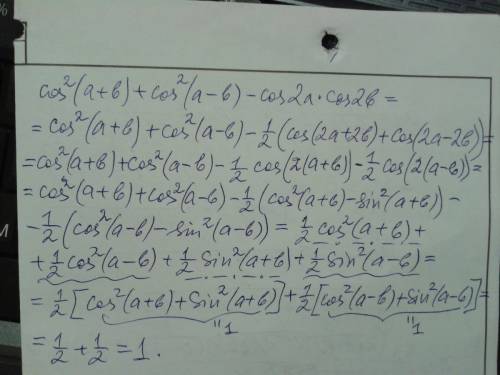 cos²(a+b)+cos²(a−b)−cos2a·cos2b=
=cos²(a+b)+cos²(a−b)−1/2(cos(2a+2b)+cos(2a−2b))=
=cos²(a+b)+cos²(a−b)−1/2 cos(2(a+b))−1/2 cos(2(a−b))=
=cos²(a+b)+cos²(a−b)−1/2(cos²(a+b)−sin²(a+b))−
−1/2(cos²(a−b)−sin²(a−b))=1/2 cos²(a+b)+
+1/2 cos²(a−b)+1/2 sin²(a+b)+1/2 sin²(a−b)=
=1/2[cos²(a+b)+sin²(a+b)]+1/2[cos²(a−b)+sin²(a−b)]=
"1 "1
=1/2+1/2=1.